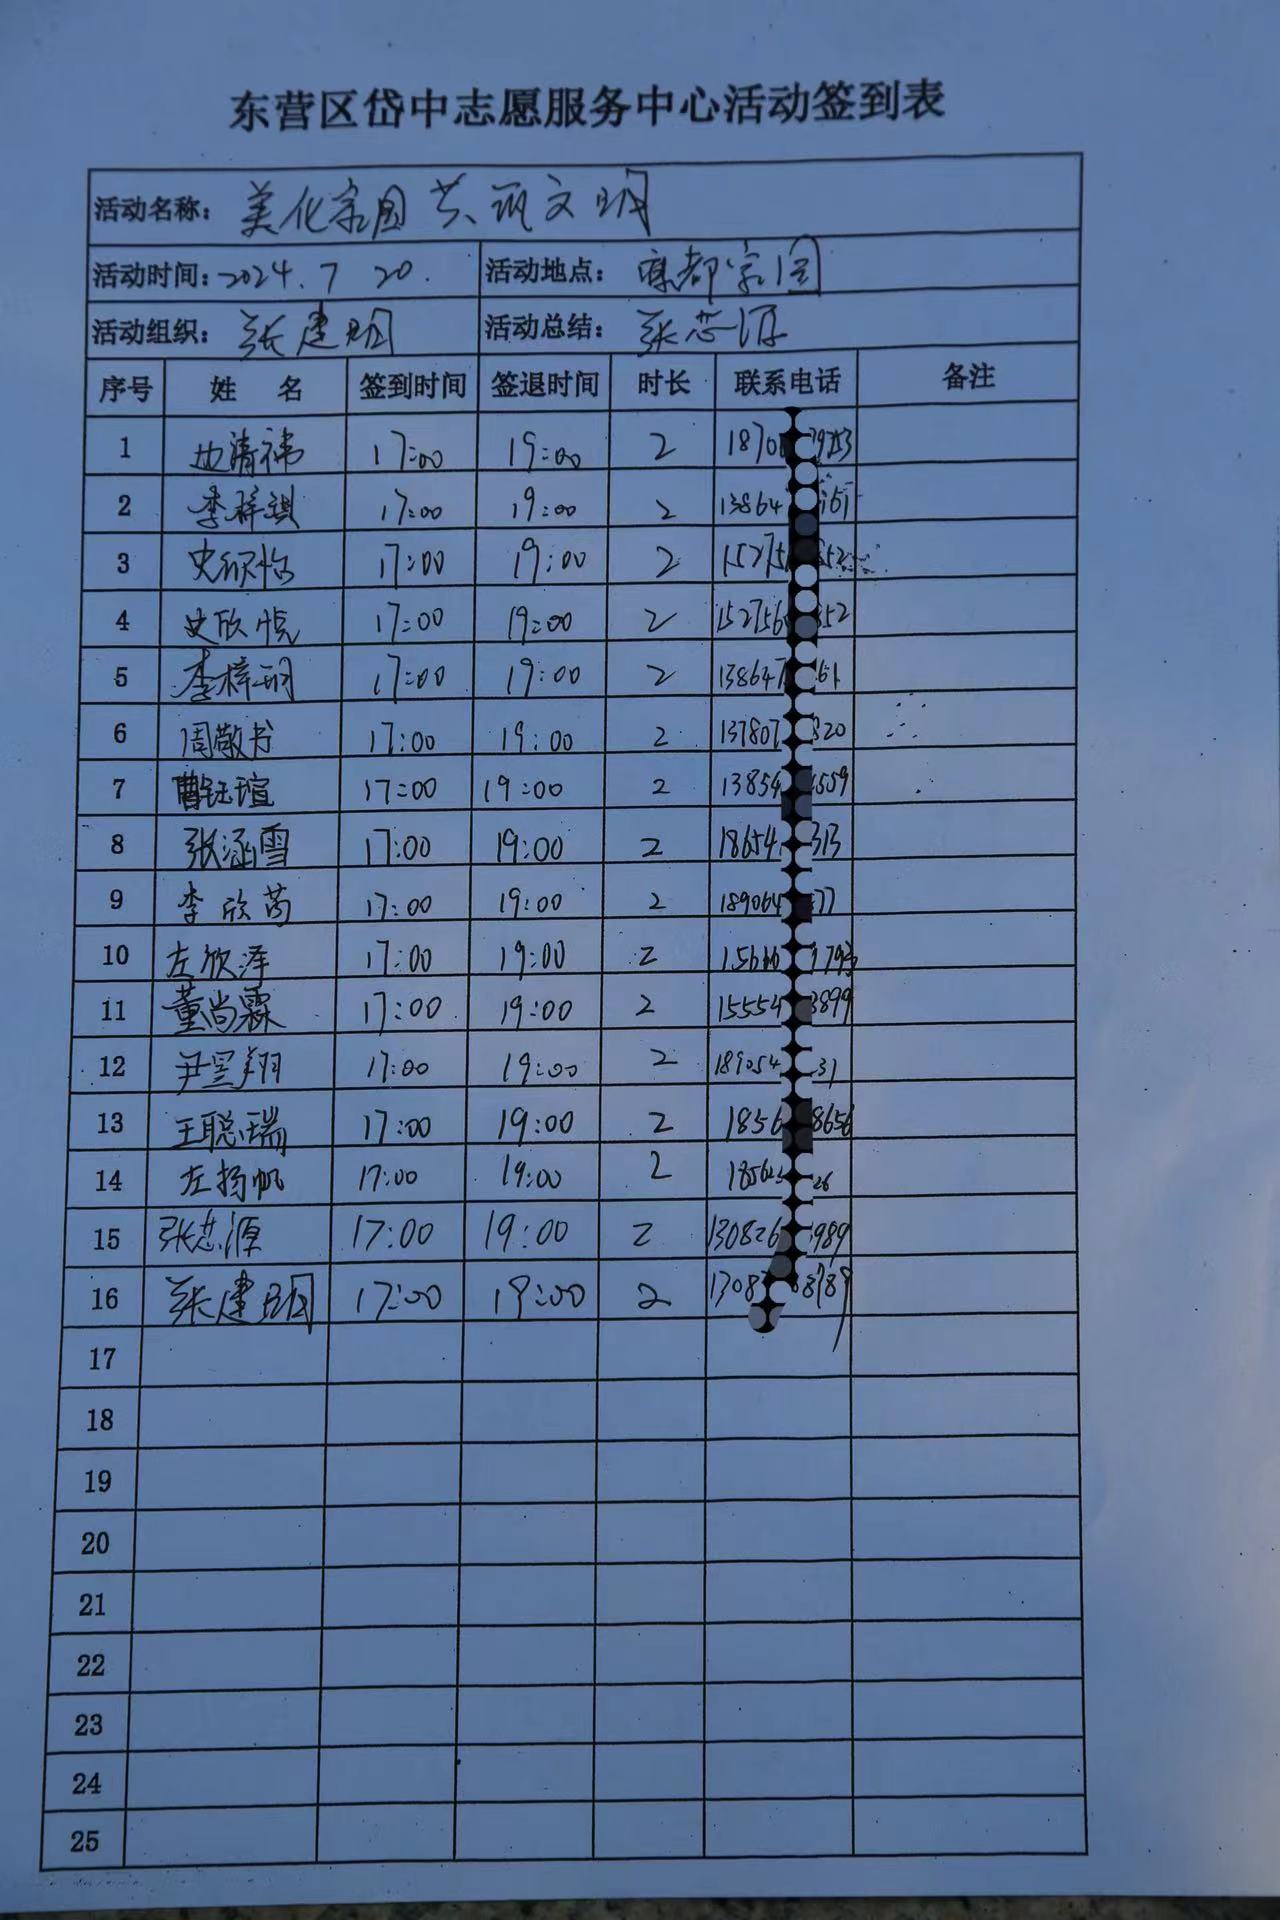 东营区岱中志愿服务中心活动签到表
活动名称: 美化家园 共筑文明
活动时间: 2024.7 20. 活动地点: 都家园
活动组织: 张建明 活动总结: 张芯源
序号 姓 名 签到时间 签退时间 时长 联系电话 备注
1 清祎 17:00 19:00 2 1870 9253
2 李梓琪 17:00 19:00 2 13864 161
3 史欣怡 17:00 19:00 2 15275 852
4 史欣悦 17:00 19:00 2 152756 852
5 李梓玥 17:00 19:00 2 138647 161
6 周敬书 17:00 19:00 2 137807 820
7 曹钰瑄 17:00 19:00 2 13854 1559
8 张涵雪 17:00 19:00 2 18654 313
9 李欣芮 17:00 19:00 2 189064 77
10 左欣泽 17:00 19:00 2 1793
11 董尚霖 17:00 19:00 2 15554 3899
12 尹昱翔 17:00 19:00 2 189054 31
13 王聪瑞 17:00 19:00 2 1856 8656
14 左扬帆 17:00 19:00 2 18562 26
15 张芯源 17:00 19:00 2 130826 989
16 张建明 17:00 19:00 2 1308 8789
17
18
19
20
21
22
23
24
25